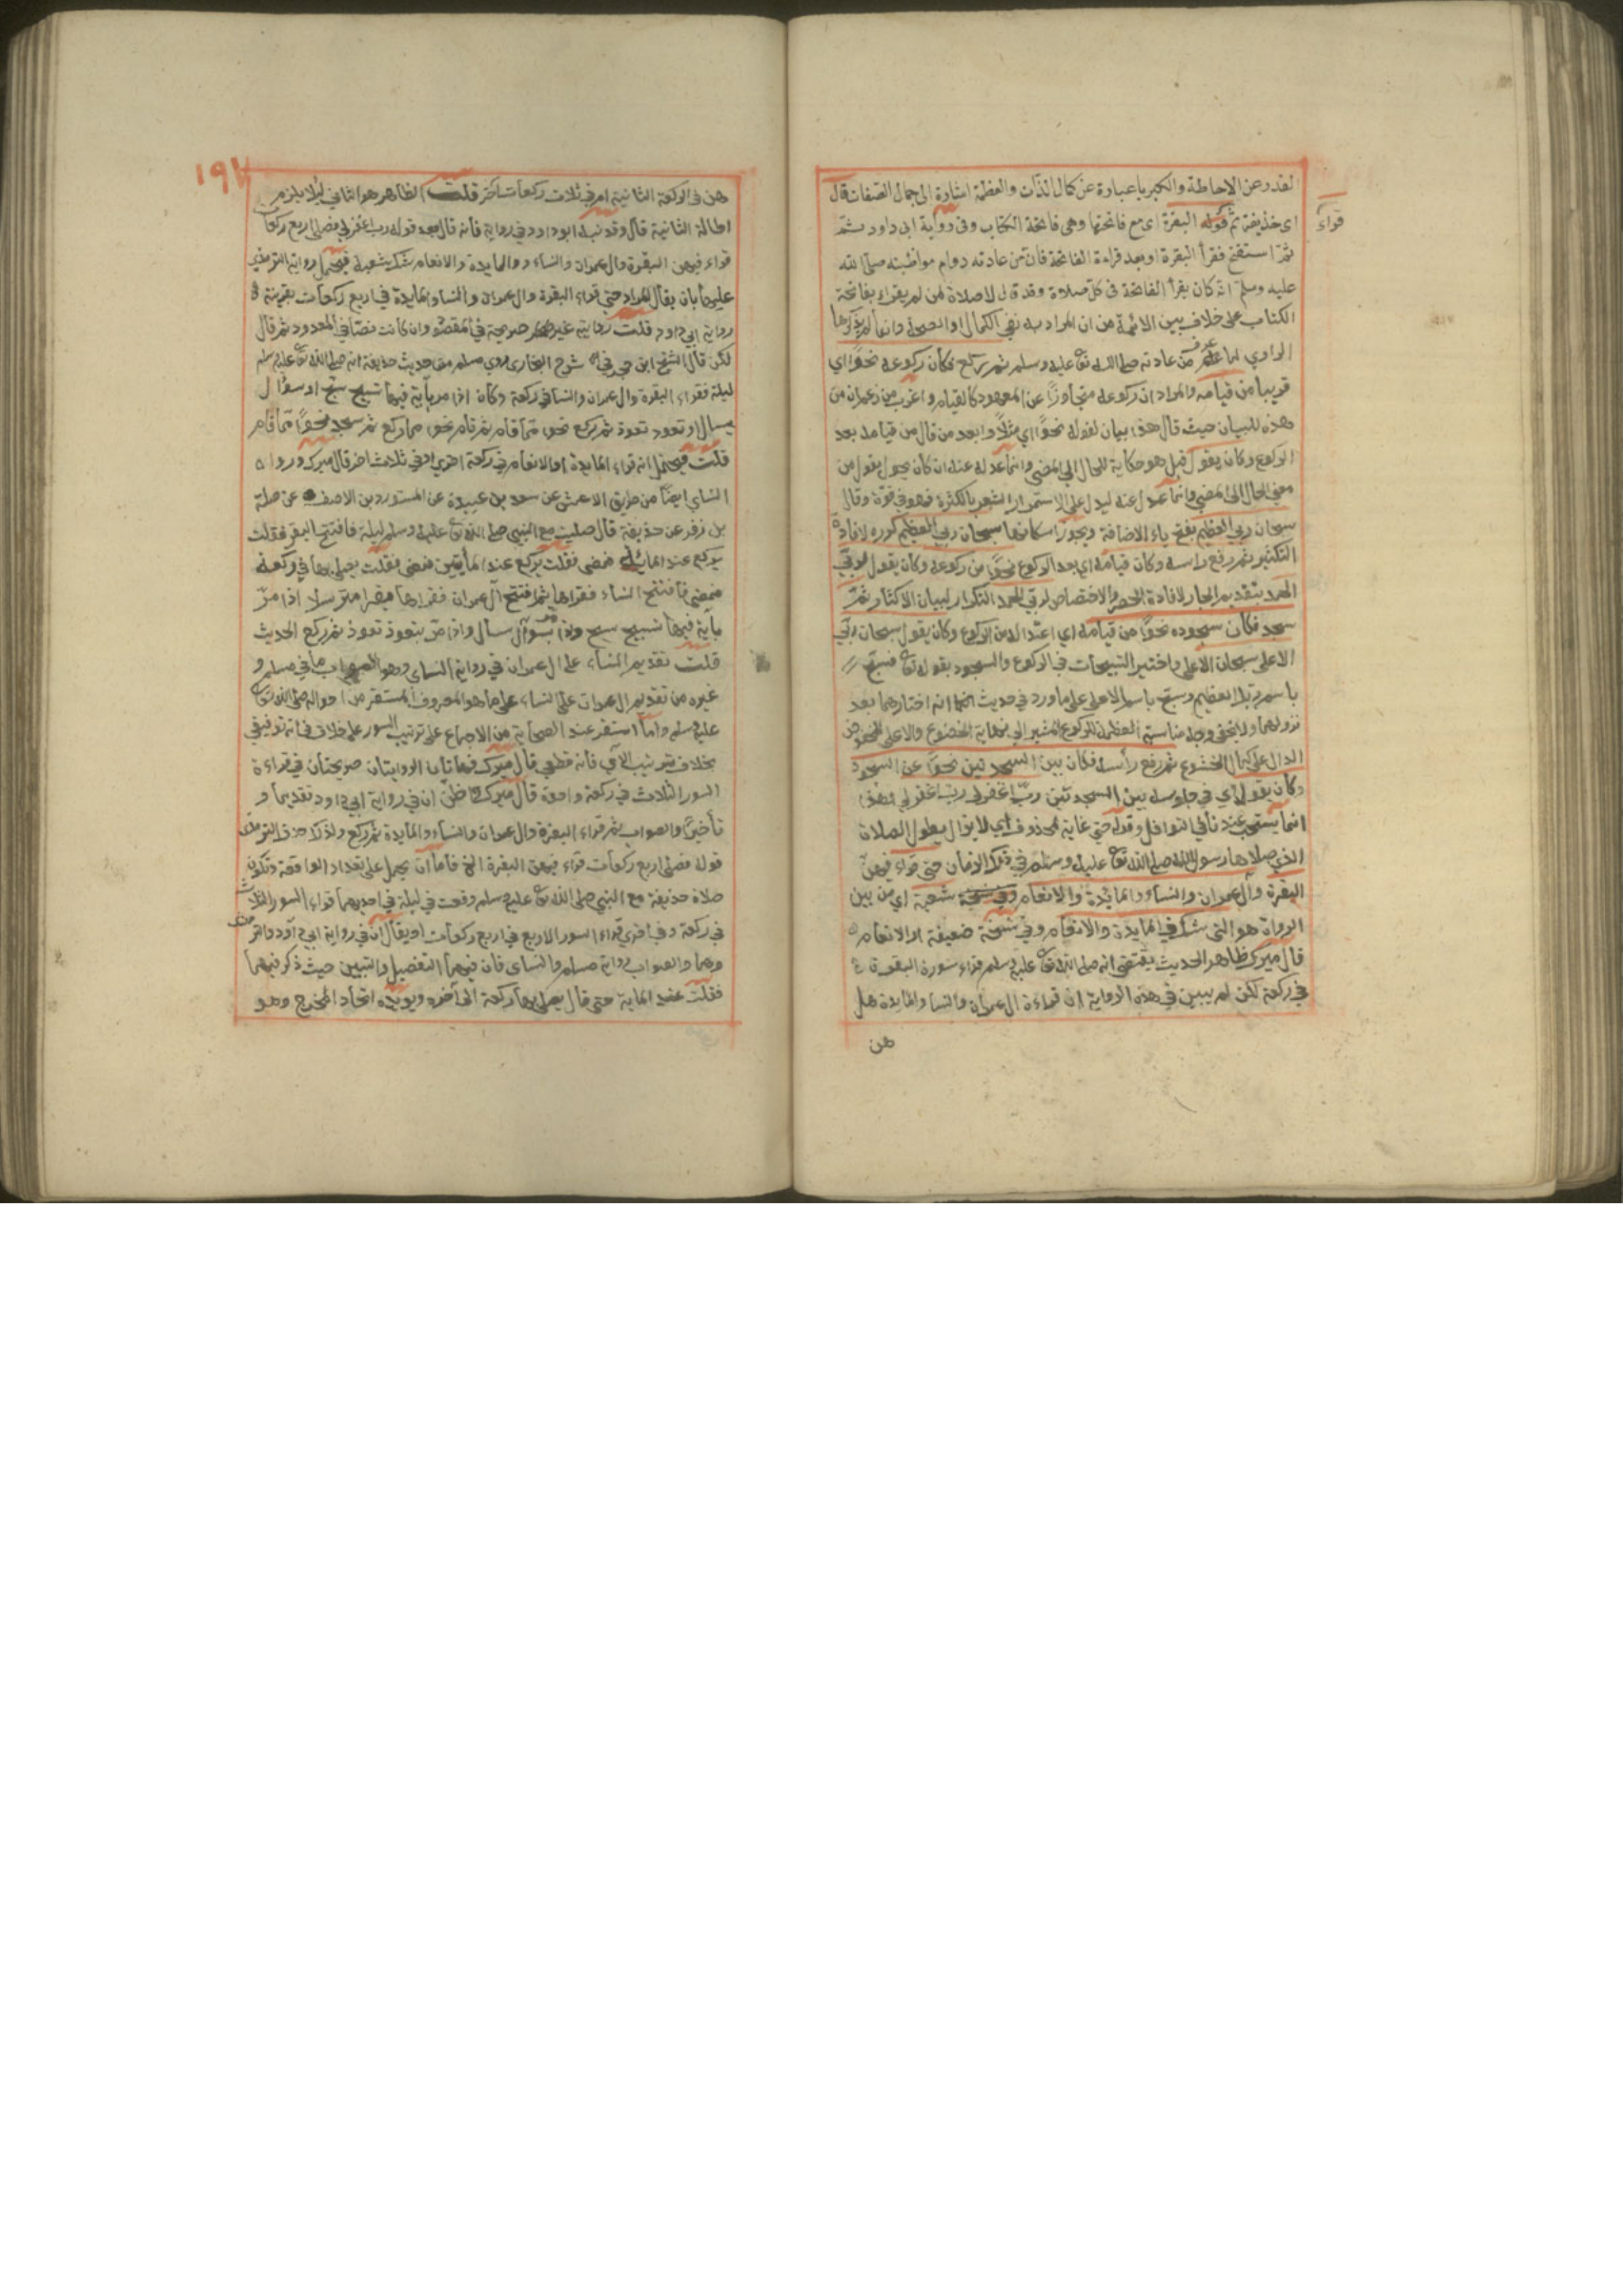 القدر عن الاحاطة والكبريا عبارة عن كمال الذات والعظمة اشارة الى جمال الصفات قال
قراء
اى حذيفة ثم قوله البقرة اى مع فاتحتها وهى فاتحة الكتاب وفى رواية ابى داود ثم
ثم استفتح فقرأ البقرة او بعد قراءة الفاتحة فان من عادته دوام مواظبته صلى الله
عليه وسلم انه كان يقرأ الفاتحة فى كل صلاة وقد قال لا صلاة لمن لم يقراء بفاتحة
الكتاب على خلاف بين الائمة من ان المراد به نفي الكمال او الصحة وانما لم يذكرها
الراوي لما عرف من عادته صلى الله تع عليه وسلم ثم ركع فكان ركوعه نحوًا اي
قريبا من قيامه والمراد ان ركوعه متجاوزًا عن المعهود كالقيام واغرب من زعم ان من
هذه للبيان حيث قال هذا بيان لقوله نحوًا اي مثلًا وابعد من قال من قيامه بعد
الركوع وكان يقول قيل هو حكاية للحال الي المضى وانما عدله عنه ان كان يحول يقول من
معنى الحال الى المضي وانما عدل عنه ليدل على الاستمرار المشعر بالكثرة فهو في قوة وقال
سبحان ربي العظيم بفتح ياء الاضافة ويجوز اسكانها سبحان ربي العظيم كرره لافادة
التكثير ثم رفع راسه وكان قيامه اي بعد الركوع نحوًا من ركوعه وكان يقول لربي
الحمد بتقديم الجار لافادة الحصر والاختصاص لربي الحمد التكرار لبيان الاكثار ثم
سجد فكان سجوده نحوًا من قيامه اي اعتداله من الركوع وكان يقول سبحان ربي
الاعلى سبحان الاعلى واختير التسبيحات في الركوع والسجود بقوله تع فسبح
باسم ربك العظيم وسبح باسم الاعلى على ما ورد في حديث انه اختارهما بعد
نزولهما ولا يخفى وجه مناسبة العظمة للركوع المشير الى نهاية الخضوع والاعلى للخفوض
الدال على كمال الخشوع ثم رفع رأسه فكان بين السجدتين نحوًا من السجود
وكان يقول اي في جلوسه بين السجدتين ربّ اغفر لي ربّ اغفر لي وهذا
انما يستحب عندنا في النوافل وقوله حتى غاية لمحذوف اي لا يزال يطول الصلاة
الذي صلاها رسول الله صلى الله تع عليه وسلم في ذلك الزمان حتى قراء فيهن
البقرة وآل عمران والنساء والمائدة والانعام شعبة اي من بين
الرواة هو الذى شك في المايدة والانعام وفي نسخة ضعيفة او الانعام
قال ميرك ظاهر الحديث يقتضي انه صلى الله تع عليه وسلم قراء سورة البقرة
في ركعة لكن لم يبين في هذه الرواية ان قراءة ال عمران والنسا والمايدة هل
هن
١٩٧
هن في الركعة الثانية ام في ثلاث ركعات اخر قلت الظاهر هو الثاني لئلا يلزم
اطالة الثانية قال وقد نبه ابو داود في رواية فانه قال بعد قوله رب اغفر لي فصلى اربع ركعات
قراء فيهن البقرة وال عمران والنساء والمايدة والانعام شك شعبة فيحمل رواية الترمذي
عليها بان يقال المراد حتى قراء البقرة وال عمران والنسا والمايدة في اربع ركعات بقرينة
رواية ابي داود قلت روايته غير صريحة في المقصود وان كانت نصا في المعدود ثم قال
لكن قال الشيخ ابن حجر في شرح البخاري روي مسلم من حديث حذيفة انه صلى الله تع عليه وسلم
ليلة فقراء البقرة وال عمران والنسا في ركعة وكان اذا مر بآية فيها تسبيح سبح او سؤال
يسال او تعوذ تعوذ ثم ركع نحوا مما قام ثم قام نحوا مما ركع ثم سجد نحوًا مما قام
قلت فيحتمل انه قراء المايدة او الانعام في ركعة اخرى او في ثلاث اخر قال ميرك ورواه
النساي ايضًا من طريق الاعمش عن سعد بن عبيدة عن المستورد بن الاحنف عن صلة
بن زفر عن حذيفة قال صليت مع النبي صلى الله تع عليه وسلم ليلة فافتتح البقرة فقلت
يركع عند المائة فمضى فقلت يركع عند المأيتين فمضى فقلت يصلي بها في ركعة
فمضى فافتتح النساء فقراها ثم افتتح آل عمران فقراها يقرا مترسلا اذا مر
بآية فيها تسبيح سبح واذا مر بسوآل سال واذا مر بتعوذ تعوذ ثم ركع الحديث
قلت تقديم النساء على ال عمران في رواية النساي وهم والصواب ما في مسلم و
غيره من تقديم ال عمران على النساء على ما هو المعروف المستقر من احواله صلى الله تع
عليه وسلم ولما استقر عند الصحابة من الاجماع على ترتيب السور على خلاف فى انه توقيفي
بخلاف ترتيب الآي فانه قطعي قال ميرك فهاتان الروايتان صريحتان في قراءة
السور الثلاث في ركعة واحدة قال ميرك ظن ان في رواية ابي داود تقديما و
تأخيرًا والصواب ثم قراء البقرة وال عمران والنساء والمايدة ثم ركع ولذلك حذف الترمذي
قوله فصلى اربع ركعات قراء فيهن البقرة الخ فاما ان يحمل على تعداد الواقعة وتكون
صلاة حذيفة مع النبي صلى الله تع عليه وسلم وقعت في ليلة في احديهما قراء السور الثلاث
في ركعة وفي اخري قراء السور الاربع في اربع ركعات او يقال ان في رواية ابي داود والترمذي
وهما والصواب رواية مسلم والنساي فان فيهما التفصيل والتبيين حيث ذكر فيهما
فقلت عند الماية حتى قال يصلي بها ركعة الى آخره ويويده اتحاد المخرج وهو